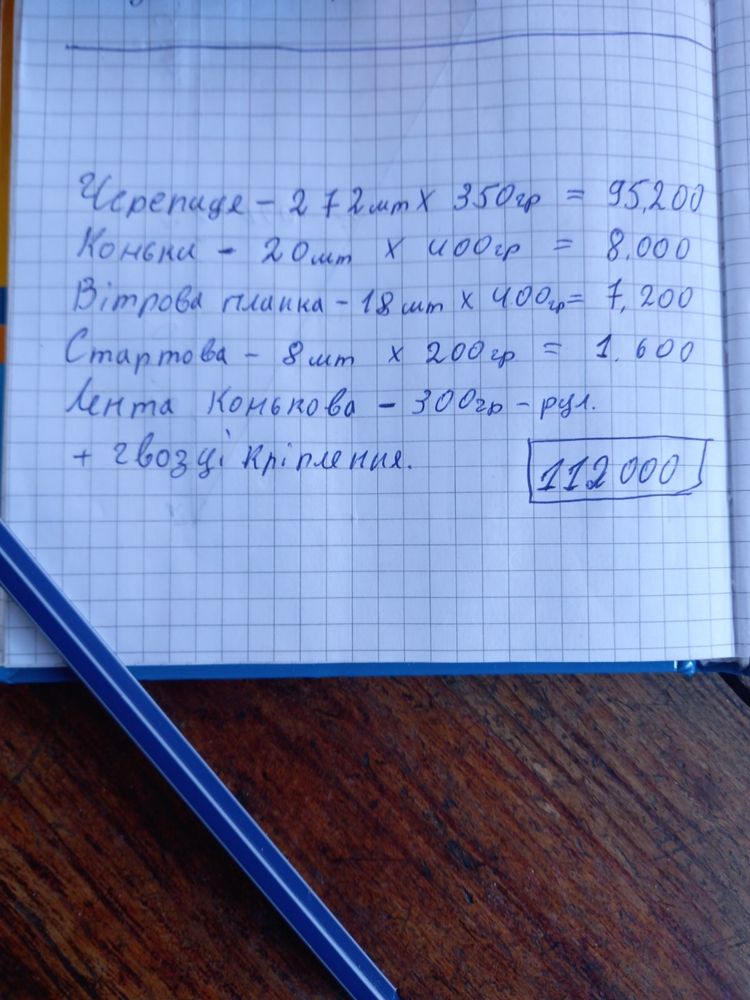 Черепиця - 272шт х 350гр = 95,200
Коньки - 20шт х 400гр = 8.000
Вітрова планка - 18шт х 400гр = 7,200
Стартова - 8шт х 200гр = 1.600
Лента Конькова - 300гр - рул.
+ гвозці кріплення.
112000